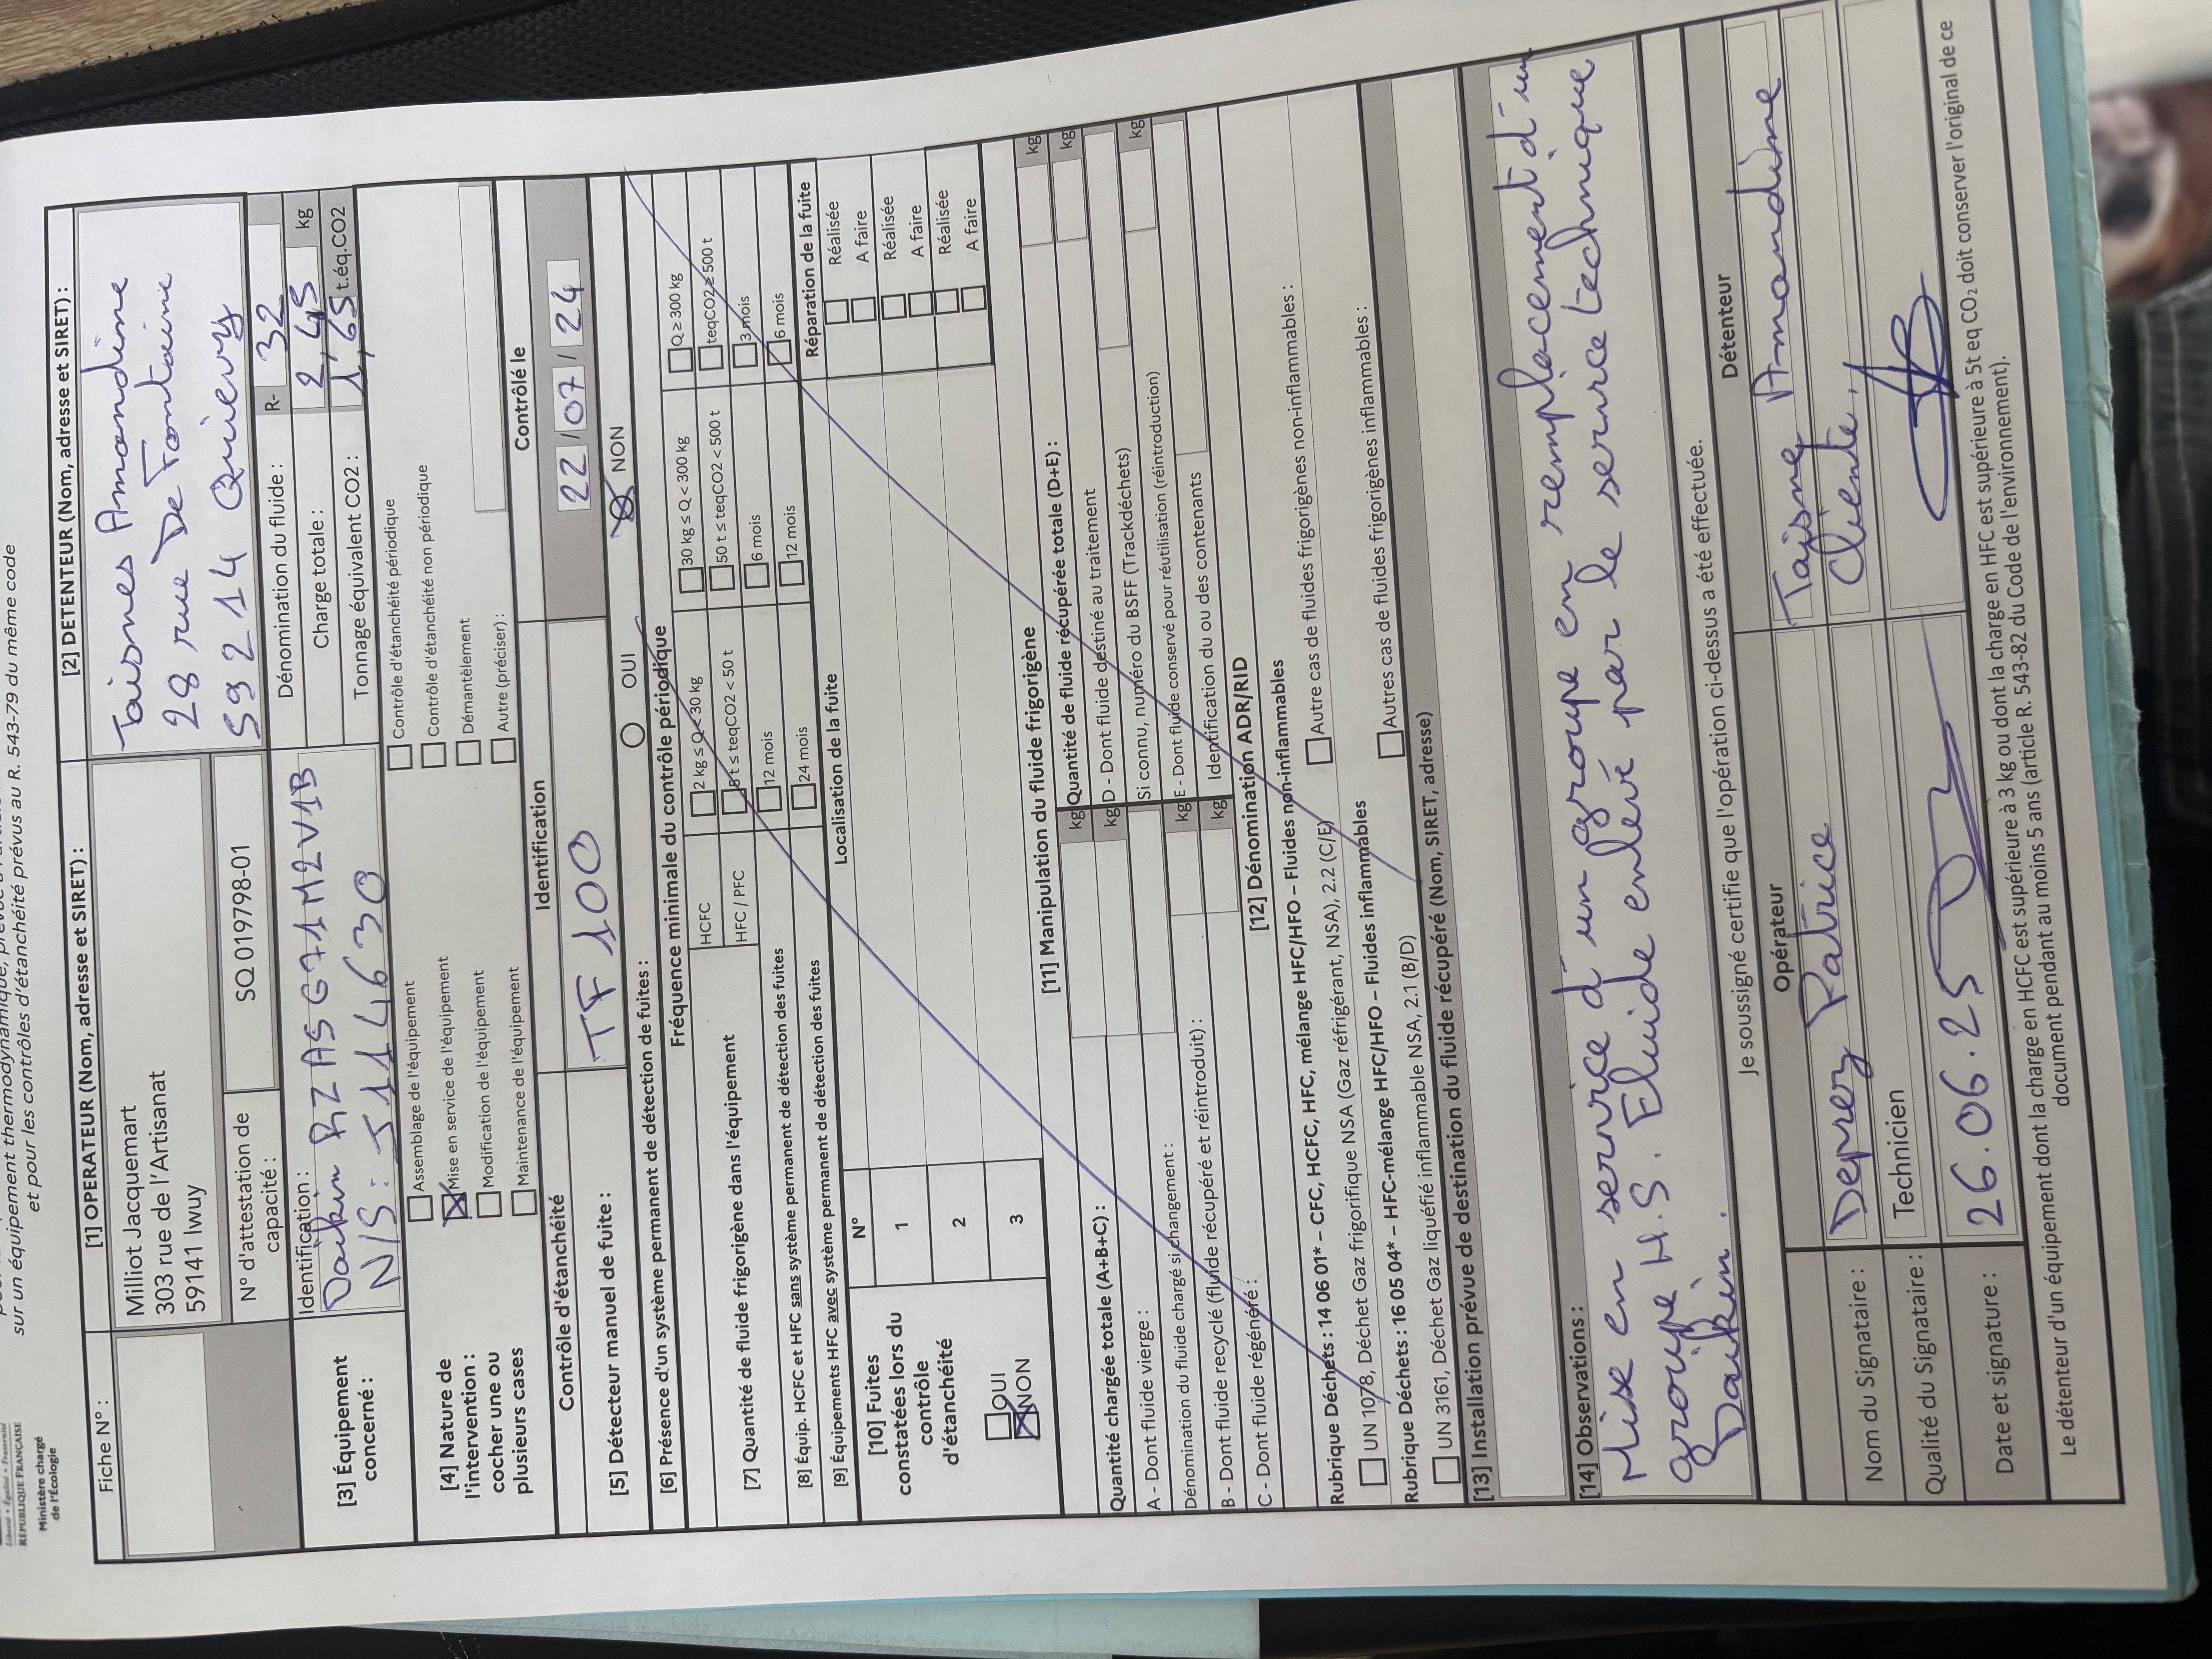 Liberté • Égalité • Fraternité
RÉPUBLIQUE FRANÇAISE
Ministère chargé
de l'Écologie
sur un équipement thermodynamique, prévue à
et pour les contrôles d'étanchéité prévus au R. 543-79 du même code
Fiche N° :
[1] OPERATEUR (Nom, adresse et SIRET) :
Milliot Jacquemart
303 rue de l'Artisanat
59141 Iwuy
N° d'attestation de capacité :
SQ 019798-01
[2] DETENTEUR (Nom, adresse et SIRET) :
Taisnes Amandine
28 rue De Fontaine
59214 Quievy
[3] Équipement concerné :
Identification :
Daikin RZASG71M2V1B
N/S : J114630
Dénomination du fluide : R- 32
Charge totale : 2,45 kg
Tonnage équivalent CO2 : 1,65 t.éq.CO2
[4] Nature de l'intervention : cocher une ou plusieurs cases
Assemblage de l'équipement
Mise en service de l'équipement
Modification de l'équipement
Maintenance de l'équipement
Contrôle d'étanchéité périodique
Contrôle d'étanchéité non périodique
Démantèlement
Autre (préciser) :
Contrôle d'étanchéité
Identification
Contrôlé le
[5] Détecteur manuel de fuite :
TF 100
22 / 07 / 24
[6] Présence d'un système permanent de détection de fuites :
OUI
NON
Fréquence minimale du contrôle périodique
[7] Quantité de fluide frigorigène dans l'équipement
HCFC
2 kg ≤ Q < 30 kg
30 kg ≤ Q < 300 kg
Q ≥ 300 kg
HFC / PFC
5 t ≤ teqCO2 < 50 t
50 t ≤ teqCO2 < 500 t
teqCO2 ≥ 500 t
[8] Équip. HCFC et HFC sans système permanent de détection des fuites
12 mois
6 mois
3 mois
[9] Équipements HFC avec système permanent de détection des fuites
24 mois
12 mois
6 mois
[10] Fuites constatées lors du contrôle d'étanchéité
OUI
NON
N°
Localisation de la fuite
Réparation de la fuite
1
Réalisée
A faire
2
Réalisée
A faire
3
Réalisée
A faire
[11] Manipulation du fluide frigorigène
Quantité chargée totale (A+B+C) : kg
A - Dont fluide vierge : kg
Dénomination du fluide chargé si changement :
B - Dont fluide recyclé (fluide récupéré et réintroduit) : kg
C - Dont fluide régénéré : kg
Quantité de fluide récupérée totale (D+E) : kg
D - Dont fluide destiné au traitement kg
Si connu, numéro du BSFF (Trackdéchets)
E - Dont fluide conservé pour réutilisation (réintroduction) kg
Identification du ou des contenants
[12] Dénomination ADR/RID
Rubrique Déchets : 14 06 01* – CFC, HCFC, HFC, mélange HFC/HFO – Fluides non-inflammables
UN 1078, Déchet Gaz frigorifique NSA (Gaz réfrigérant, NSA), 2.2 (C/E)
Autre cas de fluides frigorigènes non-inflammables :
Rubrique Déchets : 16 05 04* – HFC-mélange HFC/HFO – Fluides inflammables
UN 3161, Déchet Gaz liquéfié inflammable NSA, 2.1 (B/D)
Autres cas de fluides frigorigènes inflammables :
[13] Installation prévue de destination du fluide récupéré (Nom, SIRET, adresse)
[14] Observations :
Mise en service d'un groupe en remplacement d'un
groupe H.S. Fluide enlevé par le service technique
Daikin.
Je soussigné certifie que l'opération ci-dessus a été effectuée.
Opérateur
Détenteur
Nom du Signataire :
Deprez Patrice
Taisne Amandine
Qualité du Signataire :
Technicien
Cliente
Date et signature :
26.06.25
Le détenteur d'un équipement dont la charge en HCFC est supérieure à 3 kg ou dont la charge en HFC est supérieure à 5t eq CO₂ doit conserver l'original de ce
document pendant au moins 5 ans (article R. 543-82 du Code de l'environnement).